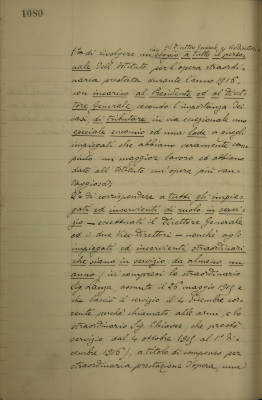 1080
al Direttore Generale, ai Vicedirettori e
1º di rivolgere un elogio a tutto il perso-
nale dell'Istituto per l'opera straordi-
naria prestata durante l'anno 1916,
con incarico al Presidente od al Diret-
tore Generale secondo l'importanza dei
casi di tributare in via eccezionale uno
speciale encomio od una lode a quegli
impiegati che abbiano veramente com-
piuto un maggior lavoro ed abbiano
dato all'Istituto un'opera più van-
taggiosa;
2º di corrispondere a tutti gli impie-
gati ed inservienti di ruolo in servi-
zio - eccettuati il Direttore Generale
ed i due Vice-Direttori - nonchè agli
impiegati ed inservienti straordinari
che siano in servizio da almeno un
anno (ivi compresi lo straordinario
Sig. Lanza assunto il 26 maggio 1915 e
che lasciò il servizio il 4 dicembre cor-
rente, perchè chiamato alle armi, e lo
straordinario Sig. Chiaves che prestò
servizio dal 4 ottobre 1915 al 1º di-
cembre 1916), a titolo di compenso per
straordinaria prestazione d'opera, una